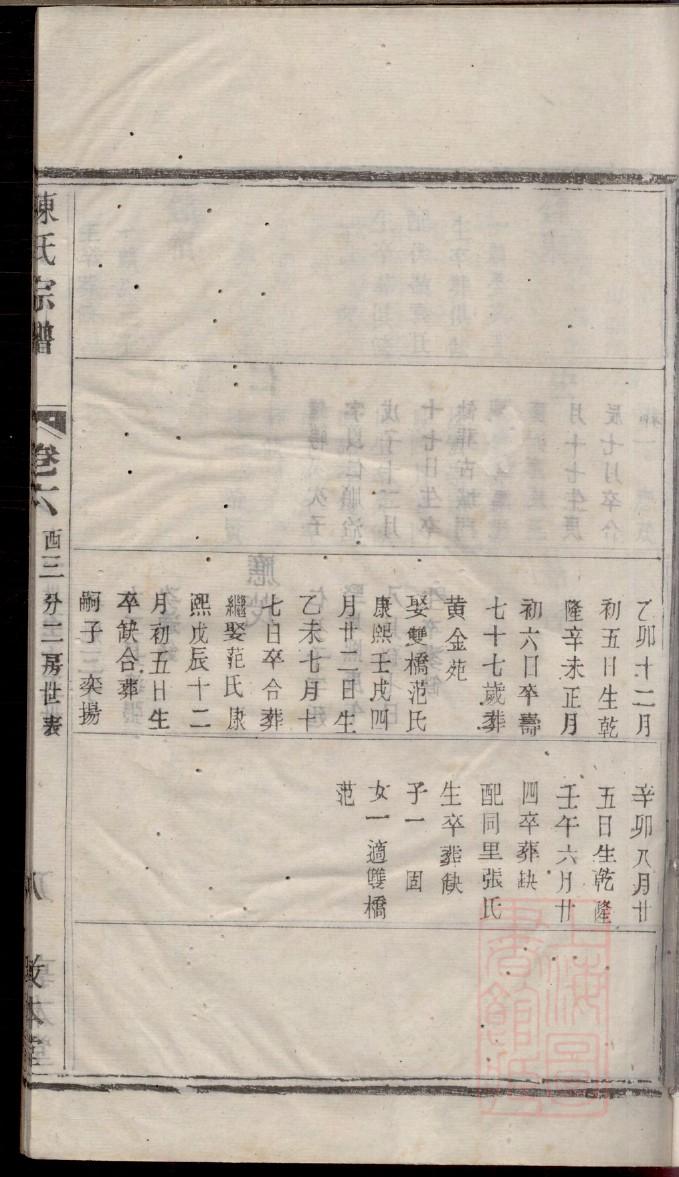 乙卯十二月
初五日生乾
隆辛未正月
初六日卒壽
七十七歲葬
黄金苑
娶雙橋范氏
康熙壬戌四
月廿二日生
乙未七月十
七日卒合葬
繼娶范氏康
熙戊辰十二
月初五日生
卒缺合葬
嗣子 奕揚
辛卯八月廿
五日生乾隆
壬午六月廿
四卒葬缺
配同里張氏
生卒葬缺
子一 固
女一適雙橋
范
陳氏宗譜
卷六
酉三分二房世表
敦本堂
上海圖書館